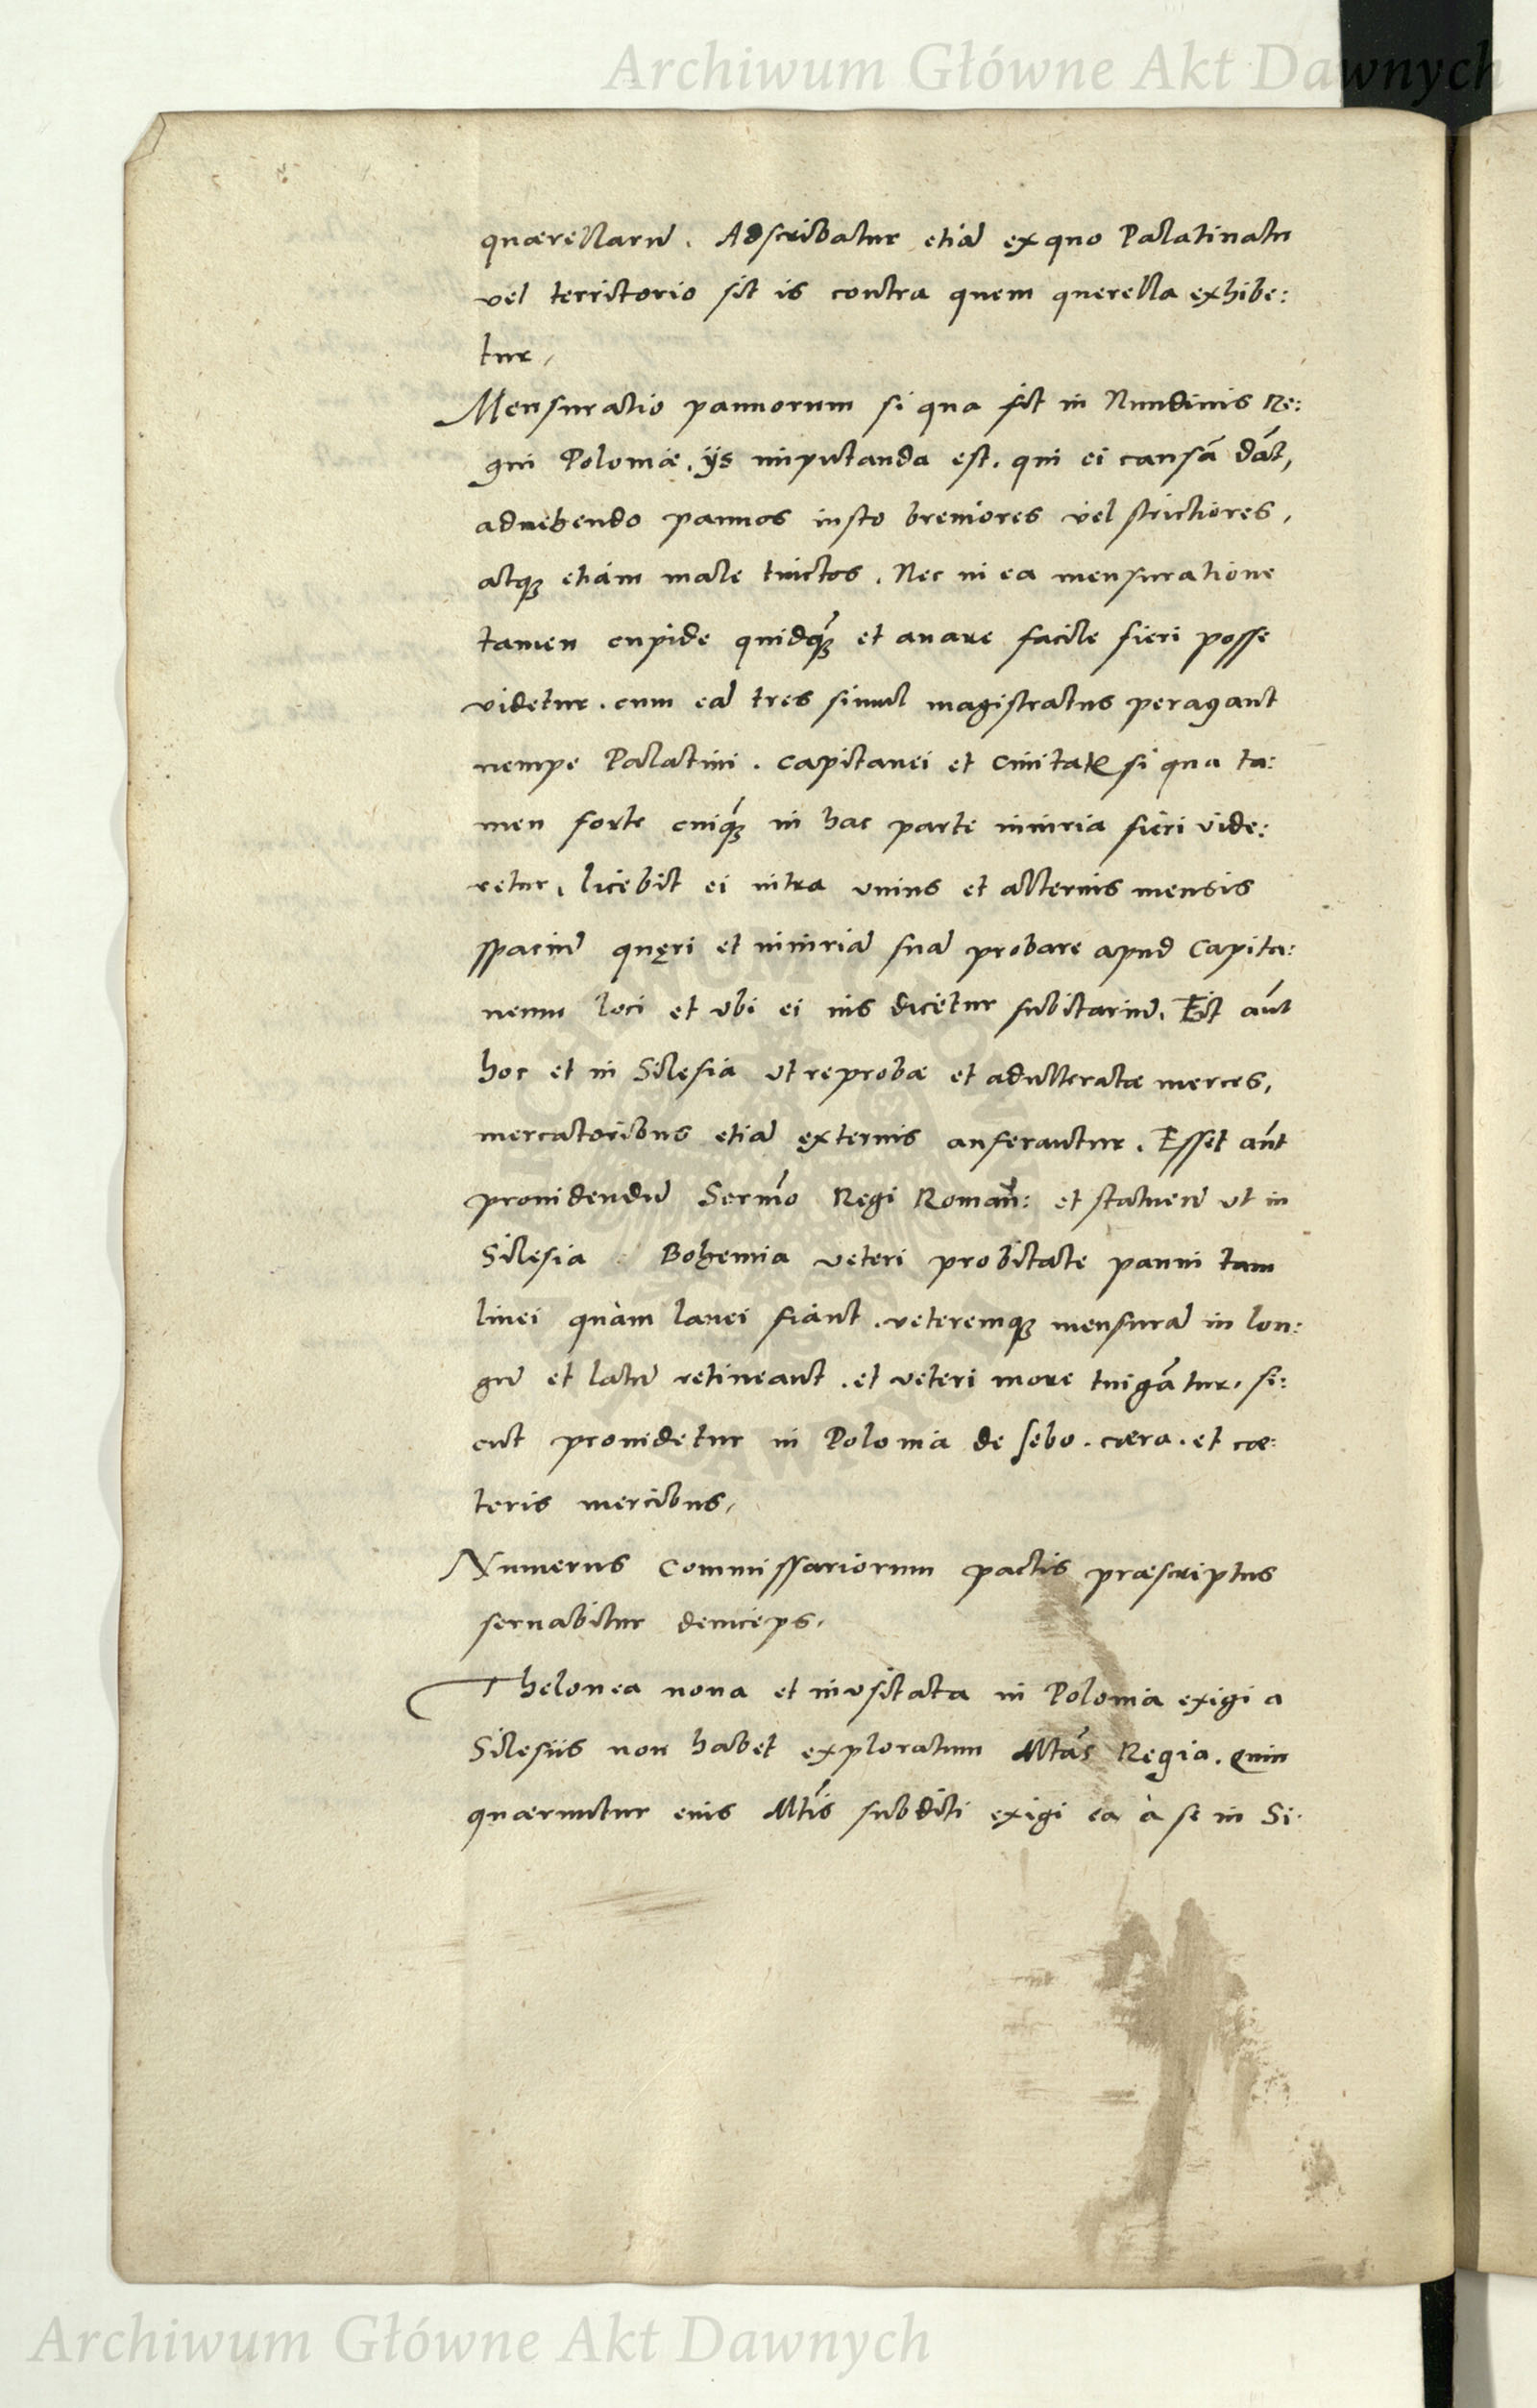 Archiwum Główne Akt Dawnych
quærellarū. Adscribatur etiā ex quo Palatinatu
vel territorio sit is contra quem querella exhibe:
tur,
Mensuratio pannorum si qua fit in Nundinis Re:
gni Poloniæ, ijs imputanda est, qui ei causā dāt,
aduehendo pannos iusto breuiores vel strictiores,
atqȝ etiam male tinctos. Nec in ea mensuratione
tamen cupide quidqȝ et auare facile fieri posse
videtur. cum eā tres simul magistratus peragant
nempe Palatini. capitanei et ciuitates si qua ta:
men forte cuiqȝ in hac parte iniuria fieri vide:
retur, licebit ei intra vnius et alterius mensis
spaciū quęri et iniuriā suā probare apud Capita:
neum loci et vbi ei ius dicetur subitariū. Fit aūt
hoc et in Silesia vt reprobæ et adulteratæ merces,
mercatoribus etiā externis auferantur. Esset aūt
prouidendū Sermo Regi Roman: et statuenū vt in
Silesia Bohemia veteri probitate panni tam
linei quàm lanei fiant. veteremqȝ mensurā in lon:
gū et latū retineant. et veteri more tingātur, si:
cut prouidetur in Polonia de sebo. cæra. et cæ:
teris mercibus,
Numerus Commissariorum pactis præscriptus
seruabitur deinceps.
Thelonea noua et invsitata in Polonia exigi a
Silesiis non habet exploratum Mtas Regia. Quin
quæruntur eius Mtis subditi exigi ea à se in Si:
Archiwum Główne Akt Dawnych